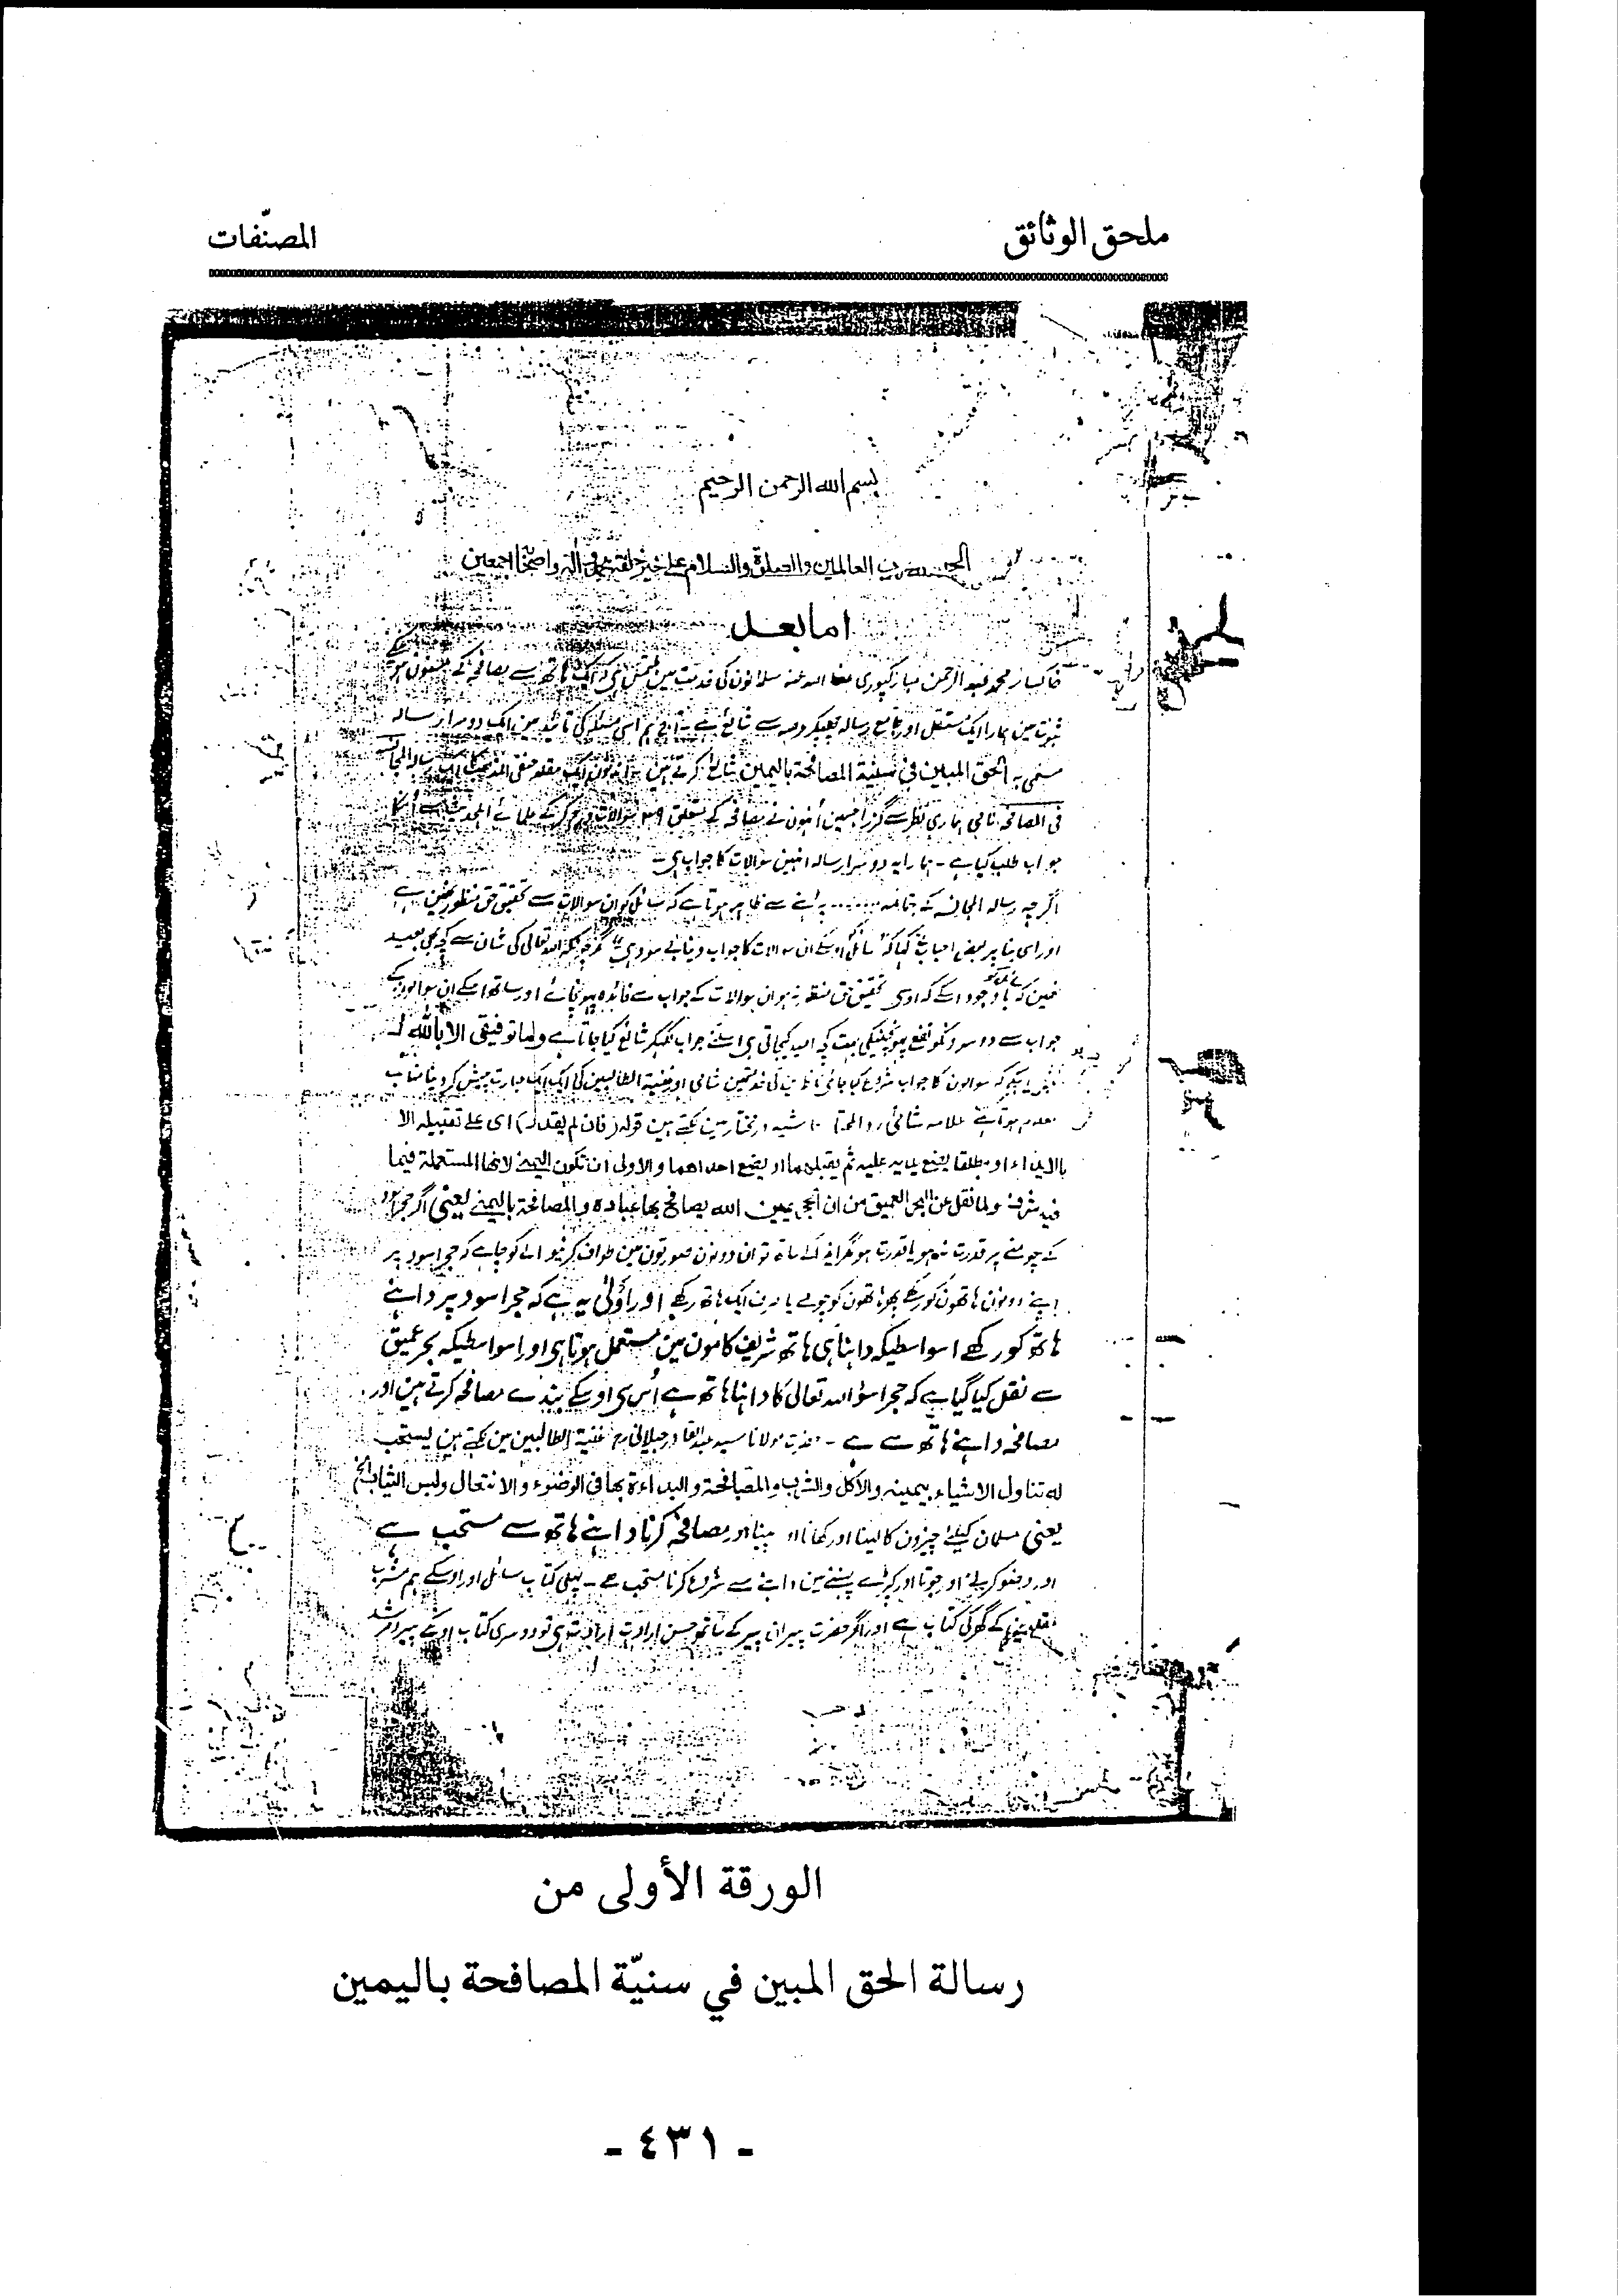 ملحق الوثائق
المصنّفات
بسم الله الرحمن الرحيم
الحمد لله رب العالمين والصلوة والسلام على خير خلقه محمد وآله واصحابه اجمعين
اما بعد
خاکسار محمد عبد الرحمن مبارکپوری عفا الله عنه مسلمانون کی خدمت مین ملتمس ہی کہ ایک ہاتھ سے مصافحہ کے مسنون ہونے کے
ثبوت مین ہمارا ایک مستقل اور جامع رسالہ چھپکر عرصہ سے شائع ہے آج ہم اسی مسئلہ کی تائید مین ایک دوسرا رسالہ
مسمی بہ الحق المبین فی سنیۃ المصافحۃ بالیمین شائع کرتے ہین ایک مقلد حنفی المذہب کا ایک رسالہ المجالسہ
فی المصافحہ نامی ہماری نظر سے گزرا جسمین اُنہون نے مصافحہ کے متعلق سوالات درج کرکے علمائے اہلحدیث سے اُنکا
جواب طلب کیا ہے - ہمارا یہ دوسرا رسالہ انہین سوالات کا جواب ہی -
اگرچہ رسالہ المجالسہ کے خاتمہ پڑہنے سے ظاہر ہوتا ہے کہ سائل کو ان سوالات سے تحقیق حق منظور نہین ہے
اور اسی بنا پر بعض احباب نے کہا کہ سائل کو اوسکے ان سوالات کا جواب دینا بے سود ہی مگر چونکہ اللہ تعالی کی شان سے کچھ بھی بعید
نہین کہ باوجود اسکے کہ اوسی تحقیق حق منظور نہ ہو ان سوالات کے جواب سے فائدہ پہونچائے اور ساتھ اسکے ان سوالون کے
جواب سے دوسرونکو نفع پہونچنیکی بہت کچھ امید کیجاتی ہی اسلئے جواب لکھکر شائع کیا جاتا ہے وما توفیقی الا باللہ
سوالون کا جواب شروع کیا جائے ناظرین کی خدمتمین شامی اور غنیۃ الطالبین کی ایک ایک عبارت پیش کر دینا مناسب
معلوم ہوتا ہے علامہ شامی رد المحتار حاشیہ در مختار مین لکھتے ہین قولہ (فان لم یقدر) ای علی تقبیلہ الا
بالایذاء او مطلقا یضع یدیہ علیہ ثم یقبلہما او یضع احداھما والاولی ان تکون الیمنی لانھا المستعملۃ فیما
فیہ شرف ولما نقل عن البحر العمیق من ان الحجر یمین اللہ یصافح بھا عبادہ والمصافحۃ بالیمنی یعنی اگر حجر اسود
کے چومنے پر قدرت نہ ہو یا قدرت ہو مگر ایذا کے ساتھ تو ان دونون صورتون مین طواف کرنیوالے کو چاہئے کہ حجر اسود پر
اپنے دونون ہاتھون کو رکھے پھر ہاتھون کو چومے یا صرف ایک ہاتھ رکھے اور اولی یہ ہے کہ حجر اسود پر داہنے
ہاتھ کو رکھے اسواسطیکہ داہنا ہی ہاتھ شریف کامون مین مستعمل ہوتا ہی اور اسواسطیکہ بحر عمیق
سے نقل کیا گیا ہے کہ حجر اسود اللہ تعالی کا داہنا ہاتھ ہے اُس سی اوسکے بندے مصافحہ کرتے ہین اور
مصافحہ داہنے ہاتھ سے ہے - حضرت مولانا سید عبد القادر جیلانی رح غنیۃ الطالبین مین لکھتے ہین یستحب
لہ تناول الاشیاء بیمینہ والاکل والشرب والمصافحۃ والبداءۃ بھا فی الوضوء والانتعال ولبس الثیاب الخ
یعنی مسلمان کیلئے چیزون کا لینا اور کھانا اور پینا اور مصافحہ کرنا داہنے ہاتھ سے مستحب ہے
اور وضو کرنے اور جوتا اور کپڑے پہننے مین داہنے سے شروع کرنا مستحب ہے - پہلی کتاب سائل اور اوسکے ہم مشرب
مقلدین کے گھر کی کتاب ہے اور اگر حضرت پیران پیر کے ساتھ حسن ارادت ہی تو دوسری کتاب اونکے پیر و مرشد
الورقة الأولى من
رسالة الحق المبين في سنيّة المصافحة باليمين
- ٤٣١ -